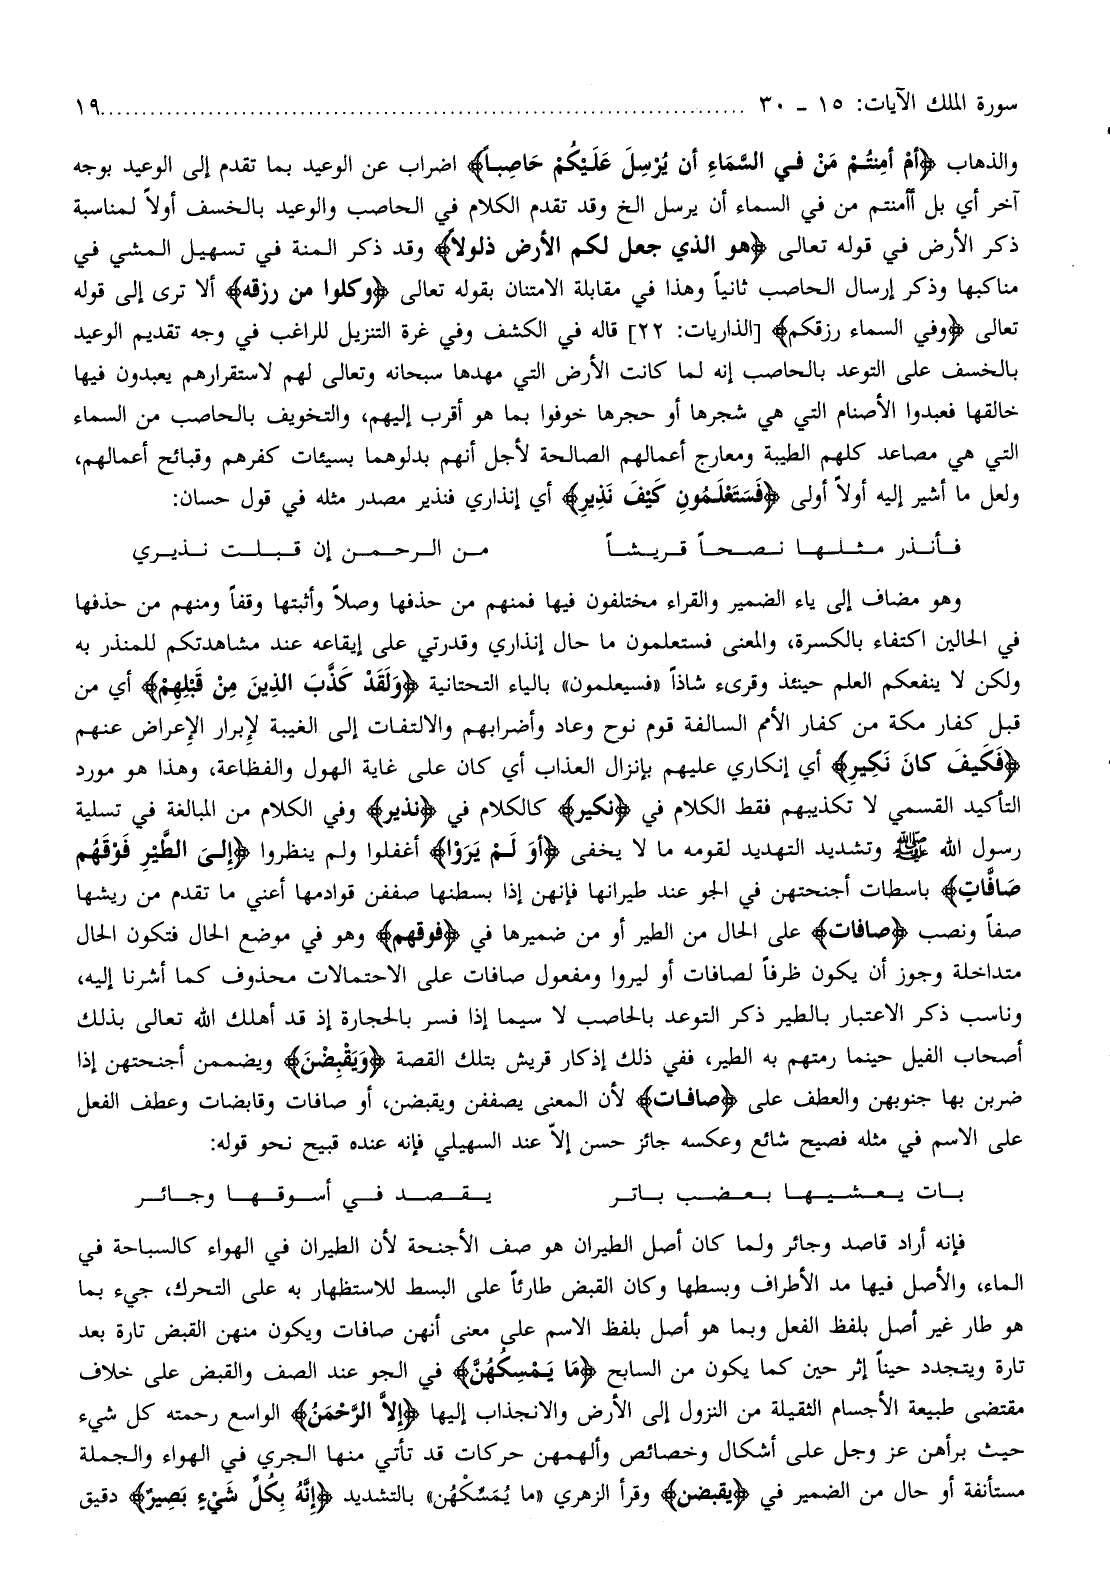 سورة الملك الآيات: ١٥ - ٣٠ ........................................................................ ١٩
والذهاب ﴿أَمْ أَمِنتُمْ مَنْ في السَّمَاءِ أن يُرْسِلَ عَلَيْكُمْ حَاصِباً﴾ اضراب عن الوعيد بما تقدم إلى الوعيد بوجه
آخر أي بل أأمنتم من في السماء أن يرسل الخ وقد تقدم الكلام في الحاصب والوعيد بالخسف أولاً لمناسبة
ذكر الأرض في قوله تعالى ﴿هو الذي جعل لكم الأرض ذلولاً﴾ وقد ذكر المنة في تسهيل المشي في
مناكبها وذكر إرسال الحاصب ثانياً وهذا في مقابلة الامتنان بقوله تعالى ﴿وكلوا من رزقه﴾ ألا ترى إلى قوله
تعالى ﴿وفي السماء رزقكم﴾ [الذاريات: ٢٢] قاله في الكشف وفي غرة التنزيل للراغب في وجه تقديم الوعيد
بالخسف على التوعد بالحاصب إنه لما كانت الأرض التي مهدها سبحانه وتعالى لهم لاستقرارهم يعبدون فيها
خالقها فعبدوا الأصنام التي هي شجرها أو حجرها خوفوا بما هو أقرب إليهم، والتخويف بالحاصب من السماء
التي هي مصاعد كلهم الطيبة ومعارج أعمالهم الصالحة لأجل أنهم بدلوهما بسيئات كفرهم وقبائح أعمالهم،
ولعل ما أشير إليه أولاً أولى ﴿فَسَتَعْلَمُونِ كَيْفَ نَذِيرِ﴾ أي إنذاري فنذير مصدر مثله في قول حسان:
فأنذر مثلها نصحاً قريشاً من الرحمن إن قبلت نذيري
وهو مضاف إلى ياء الضمير والقراء مختلفون فيها فمنهم من حذفها وصلاً وأثبتها وقفاً ومنهم من حذفها
في الحالين اكتفاء بالكسرة، والمعنى فستعلمون ما حال إنذاري وقدرتي على إيقاعه عند مشاهدتكم للمنذر به
ولكن لا ينفعكم العلم حينئذ وقرىء شاذاً «فسيعلمون» بالياء التحتانية ﴿وَلَقَدْ كَذَّبَ الذِينَ مِنْ قَبْلِهِمْ﴾ أي من
قبل كفار مكة من كفار الأمم السالفة قوم نوح وعاد وأضرابهم والالتفات إلى الغيبة لإبرار الإعراض عنهم
﴿فَكَيفَ كانَ نَكِيرِ﴾ أي إنكاري عليهم بإنزال العذاب أي كان على غاية الهول والفظاعة، وهذا هو مورد
التأكيد القسمي لا تكذيبهم فقط الكلام في ﴿نكير﴾ كالكلام في ﴿نذير﴾ وفي الكلام من المبالغة في تسلية
رسول الله ﷺ وتشديد التهديد لقومه ما لا يخفى ﴿أَوَ لَمْ يَرَوْا﴾ أغفلوا ولم ينظروا ﴿إِلىَ الطَّيْرِ فَوْقَهُم
صَافَّاتٍ﴾ باسطات أجنحتهن في الجو عند طيرانها فإنهن إذا بسطنها صففن قوادمها أعني ما تقدم من ريشها
صفاً ونصب ﴿صافات﴾ على الحال من الطير أو من ضميرها في ﴿فوقهم﴾ وهو في موضع الحال فتكون الحال
متداخلة وجوز أن يكون ظرفاً لصافات أو ليروا ومفعول صافات على الاحتمالات محذوف كما أشرنا إليه،
وناسب ذكر الاعتبار بالطير ذكر التوعد بالحاصب لا سيما إذا فسر بالحجارة إذ قد أهلك الله تعالى بذلك
أصحاب الفيل حينما رمتهم به الطير، ففي ذلك إذكار قريش بتلك القصة ﴿وَيَقْبِضْنَ﴾ ويضممن أجنحتهن إذا
ضربن بها جنوبهن والعطف على ﴿صافات﴾ لأن المعنى يصففن ويقبضن، أو صافات وقابضات وعطف الفعل
على الاسم في مثله فصيح شائع وعكسه جائز حسن إلاّ عند السهيلي فإنه عنده قبيح نحو قوله:
بات يعشيها بعضب باتر يقصد في أسوقها وجائر
فإنه أراد قاصد وجائر ولما كان أصل الطيران هو صف الأجنحة لأن الطيران في الهواء كالسباحة في
الماء، والأصل فيها مد الأطراف وبسطها وكان القبض طارئاً على البسط للاستظهار به على التحرك، جيء بما
هو طار غير أصل بلفظ الفعل وبما هو أصل بلفظ الاسم على معنى أنهن صافات ويكون منهن القبض تارة بعد
تارة ويتجدد حيناً إثر حين كما يكون من السابح ﴿مَا يَمْسِكُهُنَّ﴾ في الجو عند الصف والقبض على خلاف
مقتضى طبيعة الأجسام الثقيلة من النزول إلى الأرض والانجذاب إليها ﴿إِلاَّ الرَّحْمَنُ﴾ الواسع رحمته كل شيء
حيث برأهن عز وجل على أشكال وخصائص وألهمهن حركات قد تأتي منها الجري في الهواء والجملة
مستأنفة أو حال من الضمير في ﴿يقبضن﴾ وقرأ الزهري «ما يُمَسِّكْهُن» بالتشديد ﴿إنَّهُ بِكُلِّ شَيْءٍ بَصِيرٌ﴾ دقيق